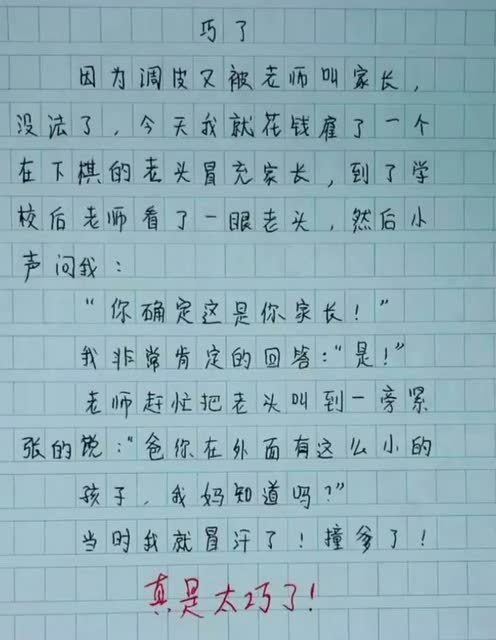 巧了
因为调皮又被老师叫家长，
没法了，今天我就花钱雇了一个
在下棋的老头冒充家长，到了学
校后老师看了一眼老头，然后小
声问我：
“你确定这是你家长！”
我非常肯定的回答：“是！”
老师赶忙把老头叫到一旁紧
张的说：“爸你在外面有这么小的
孩子，我妈知道吗？”
当时我就冒汗了！撞爹了！
真是太巧了！